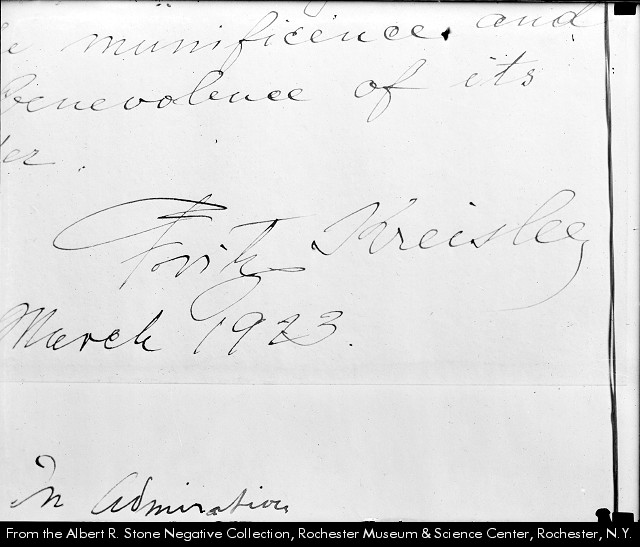 e munificence and
benevolence of its
er.
Fritz Kreisler
March 1923.
In Admiration
From the Albert R. Stone Negative Collection, Rochester Museum & Science Center, Rochester, N.Y.